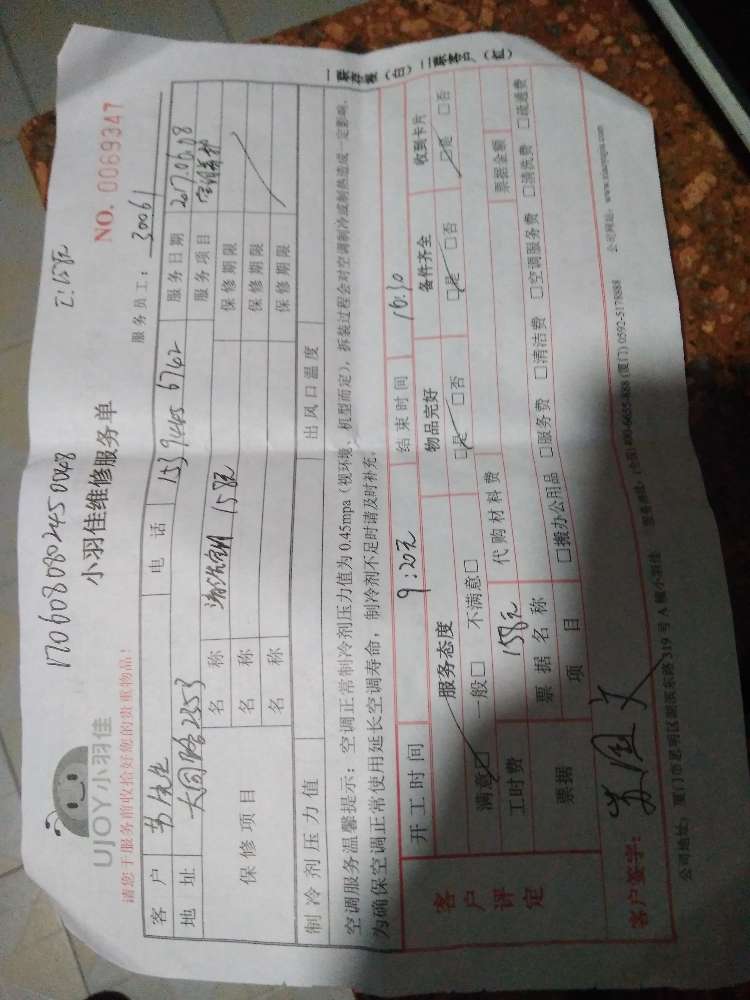 1706080802450048
已:158元
UJOY小羽佳
小羽佳维修服务单
NO. 0069347
请您于服务前收拾好您的贵重物品!
服务员工: 30061
客户 先生 电话 服务日期 2017.06.08
地址 大同路2853 服务项目 空调
保修项目 名称 清洗空调 158元 保修期限
名称 保修期限
名称 保修期限
制冷剂压力值 出风口温度
空调服务温馨提示:空调正常制冷剂压力值为0.45mpa(视环境、机型而定),拆装过程会对空调制冷或制热造成一定影响,
为确保空调正常使用延长空调寿命,制冷剂不足时请及时补充。
一联存根(白) 二联客户(红)
开工时间 结束时间 10:30
客户评定 服务态度 物品完好 备件齐全 收到卡片
满意□ 一般□ 不满意□ □是 □否 □是 □否 □是 □否
工时费 158元 代购材料费
票据 票据名称 票据金额
项目 □搬办公用品 □服务费 □清洁费 □空调服务费 □清洗费 □疏通费
客户签字:
公司地址:厦门市思明区湖滨东路319号A幢小羽佳 服务热线:(全国)400-6655-888 (厦门)0592-5178888 公司网址:www.xiaoyujia.com